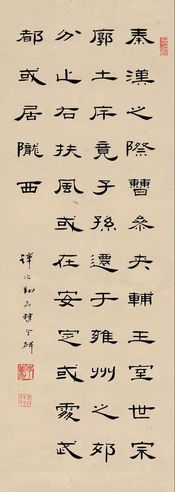 秦漢之際曹參夾輔王室世宗
廓土斥竟子孫遷于雍州之郊
分止右扶風或在安定或處武
都或居隴西
全碑